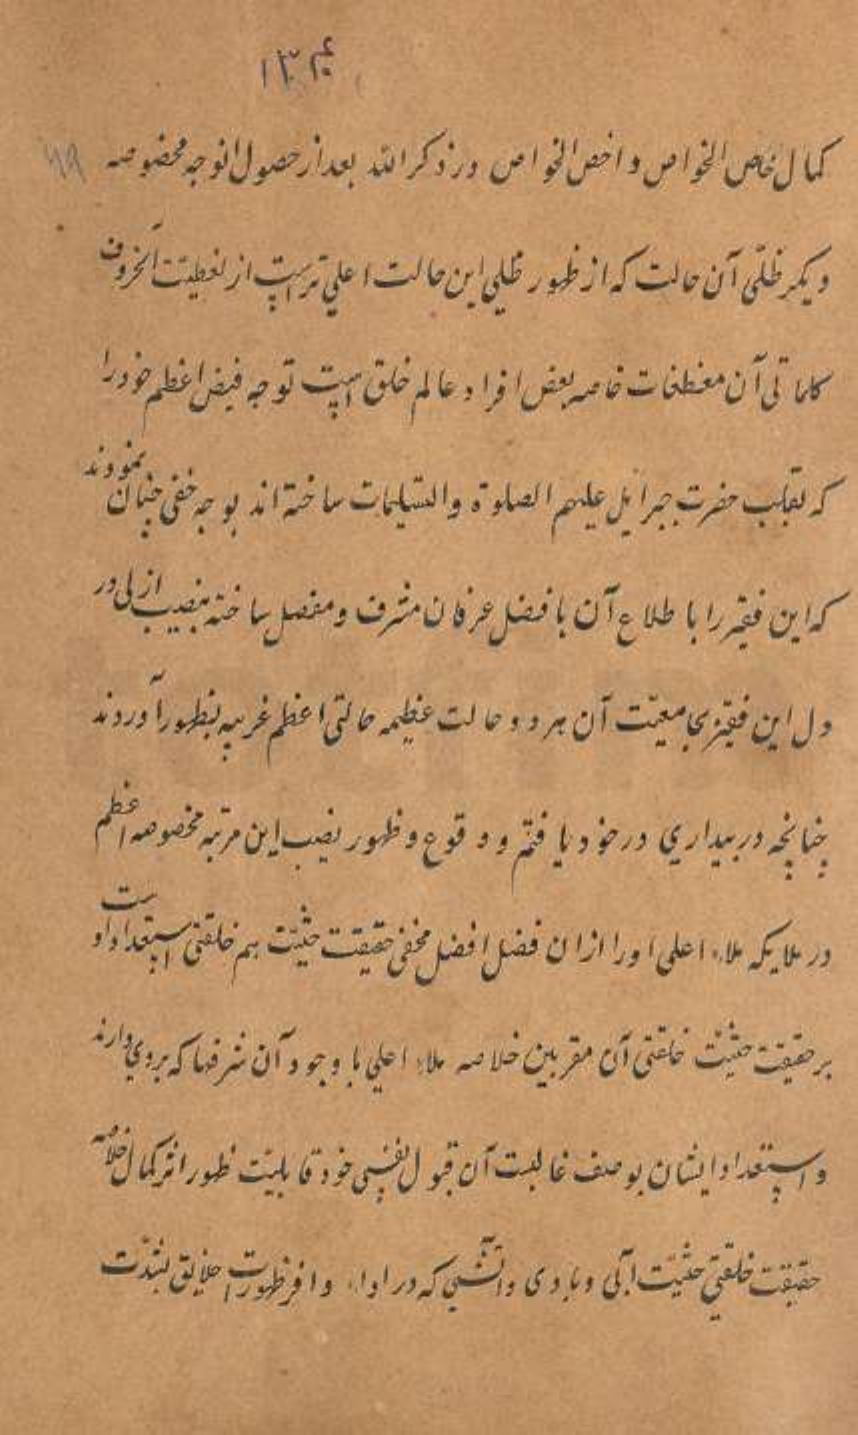 ۱۳۴
۶۹
کمال خاص الخواص و اخص الخواص در ذکر الله بعد از حصول انوجه مخصوصه
دیکر ظلّی آن حالت که از ظهور ظلی این حالت اعلی تر است از لفظیت الحروف
کلماتی آن خاصه بعض افراد عالم خلق است توجه فیض اعظم خود را
که بقلب حضرت جبرائیل علیهم الصلوة والتسلیمات ساخته اند بوجه خفی چنان نمودند
که این فقیر را باطلاع آن بافضل عرفان مشرف و مفصل ساخته بنصیب ازلی در
دل این فقیر بجامعیّت آن هر دو حالت عظیمه حالتی اعظم غریبه بظهور آوردند
چنانچه در بیداری در خود یافتم و وقوع و ظهور نصیب این مرتبه مخصوصه اعظم
در ملایکه ملاء اعلی او را ازان فضل افضل مخفی حقیقت حثیّت هم خلقتی استعداد او ست
بر حقیقت حثیّت خلقتی آن مقربین خلاصه ملاء اعلی با وجود آن شرفها که بروی دارند
و استعداد ایشان بوصف غالبت آن قبول نفیسی خود قابلیّت ظهور اثر کمال خلاصه
حقیقت خلقتی حثیّت آبی و بادی و آتشی که در اواء وافر ظهورات خلایق بشدّت